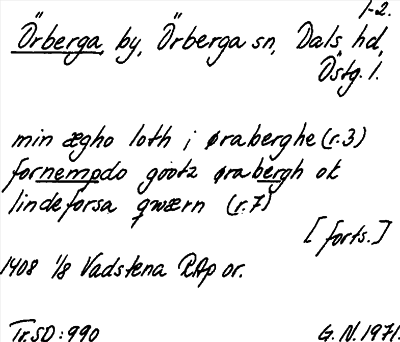 1-2.
Örberga, by, Örberga sn, Dals hd,
Östg. l.
min ægho loth i øraberghe (r. 3)
fornempdo gootz ørabergh ok
lindeforsa qwærn (r. 7)
[forts.]
1408 1/8 Vadstena RAp or.
Tr. SD: 990
G. N. 1971.